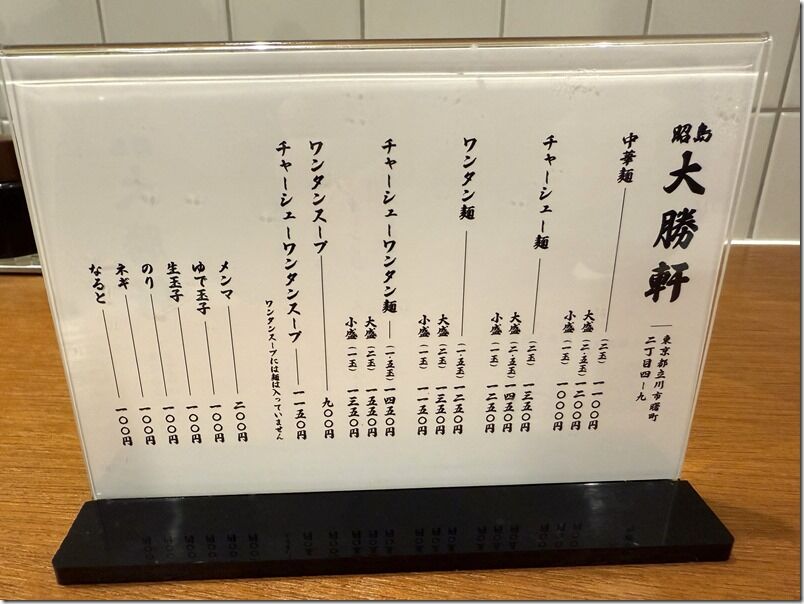 昭島
大勝軒
東京都立川市曙町
二丁目四〜九
中華麺 (二玉) 一一〇〇円
大盛 (二・五玉) 一二〇〇円
小盛 (一玉) 一〇〇〇円
チャーシュー麺 (二玉) 一三五〇円
大盛 (二・五玉) 一四五〇円
小盛 (一玉) 一二五〇円
ワンタン麺 (一・五玉) 一二五〇円
大盛 (二玉) 一三五〇円
小盛 (一玉) 一一五〇円
チャーシューワンタン麺 (一・五玉) 一四五〇円
大盛 (二玉) 一五五〇円
小盛 (一玉) 一三五〇円
ワンタンスープ 九〇〇円
チャーシューワンタンスープ 一一五〇円
ワンタンスープには麺は入っていません
メンマ 二〇〇円
ゆで玉子 一〇〇円
生玉子 一〇〇円
のり 一〇〇円
ネギ 一〇〇円
なると 一〇〇円